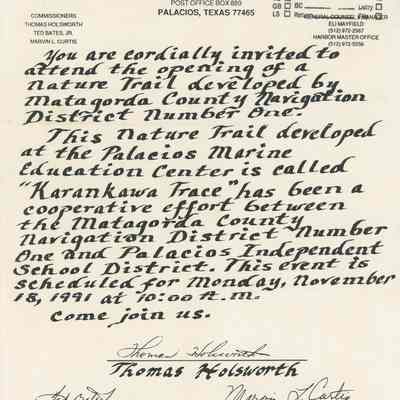 POST OFFICE BOX 689
PALACIOS, TEXAS 77465
COMMISSIONERS
THOMAS HOLSWORTH
TED BATES, JR.
MARVIN L. CURTIS
GB BC
LS
GENERAL COUNSEL
ELI MAYFIELD
(512) 972-2587
HARBOR MASTER OFFICE
(512) 972-5556
You are cordially invited to
attend the opening of a
Nature Trail developed by
Matagorda County Navigation
District Number One.
This Nature Trail developed
at the Palacios Marine
Education Center is called
"Karankawa Trace" has been a
cooperative effort between
the Matagorda County
Navigation District Number
One and Palacios Independent
School District. This event is
scheduled for Monday, November
18, 1991 at 10:00 A.M.
Come join us.
Thomas Holsworth
Thomas Holsworth
Ted Bates
Marvin L. Curtis